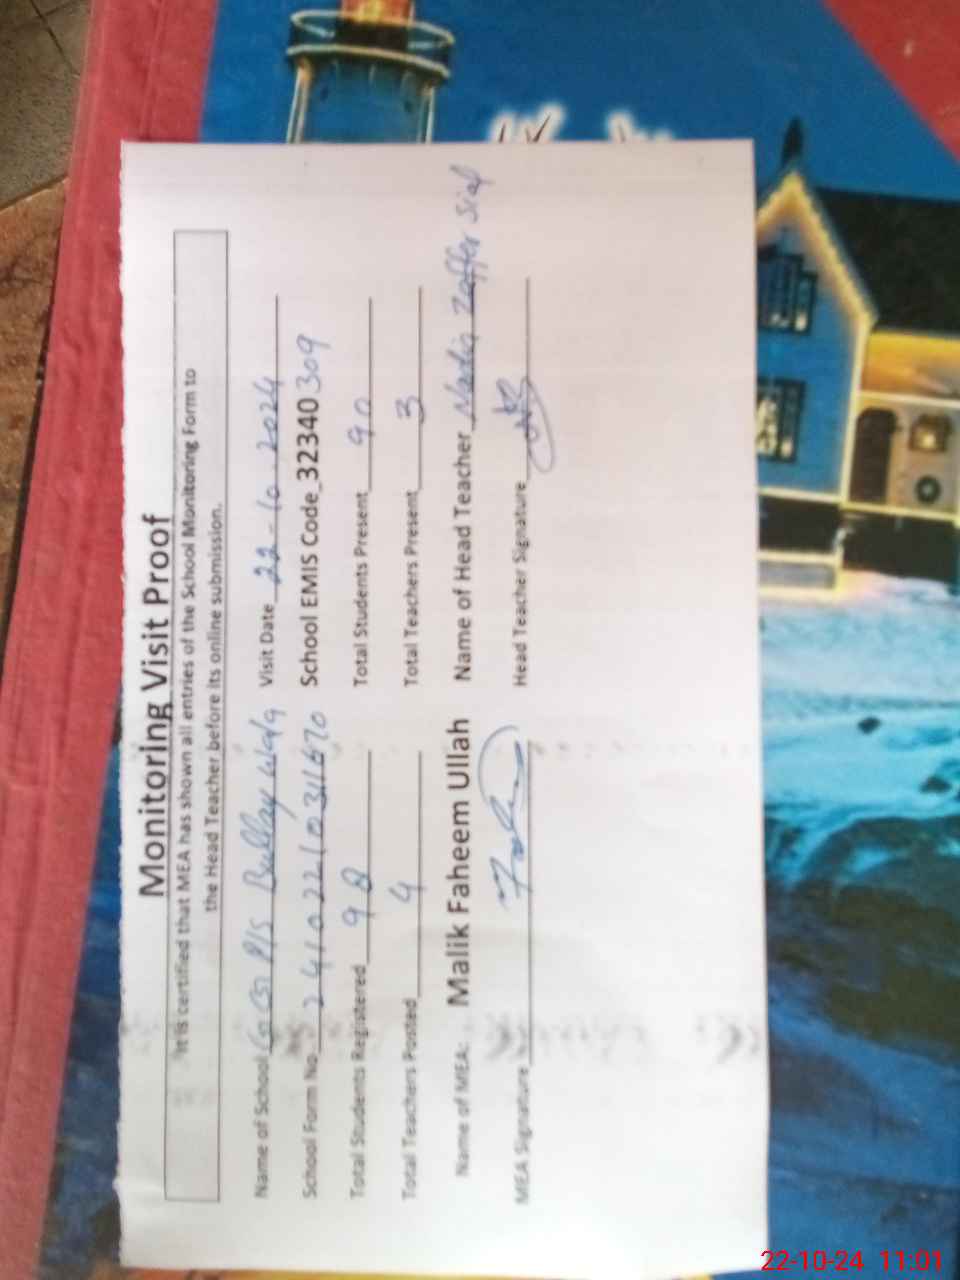 Monitoring Visit Proof
It is certified that MEA has shown all entries of the School Monitoring Form to
the Head Teacher before its online submission.
Name of School GGPS Bullay wala Visit Date 22-10-2024
School Form No. 24102210311670 School EMIS Code 32340309
Total Students Registered 98 Total Students Present 90
Total Teachers Posted 4 Total Teachers Present 3
Name of MEA: Malik Faheem Ullah Name of Head Teacher Nadia Zaffer Sial
MEA Signature Head Teacher Signature
22-10-24 11:01